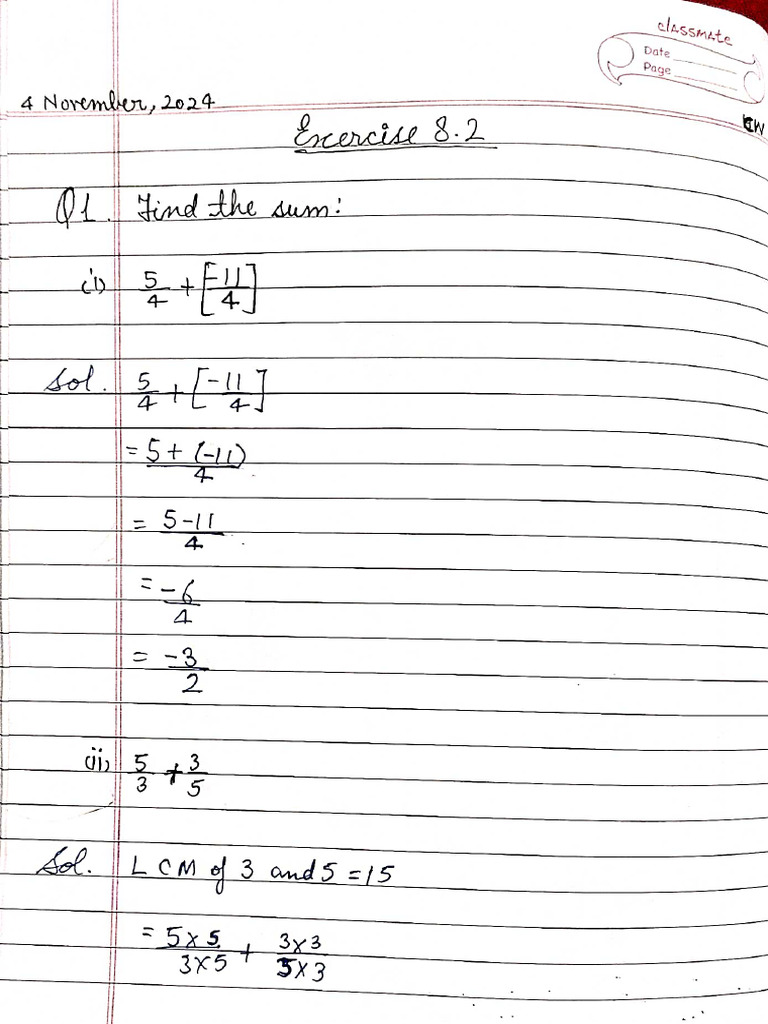 classmate
Date
Page
4 November, 2024
CW
Exercise 8.2
Q1. Find the sum:
(i) 5/4 + [-11/4]
Sol. 5/4 + [-11/4]
= 5+(-11)/4
= 5-11/4
= -6/4
= -3/2
(ii) 5/3 + 3/5
Sol. LCM of 3 and 5 = 15
= 5×5/3×5 + 3×3/5×3